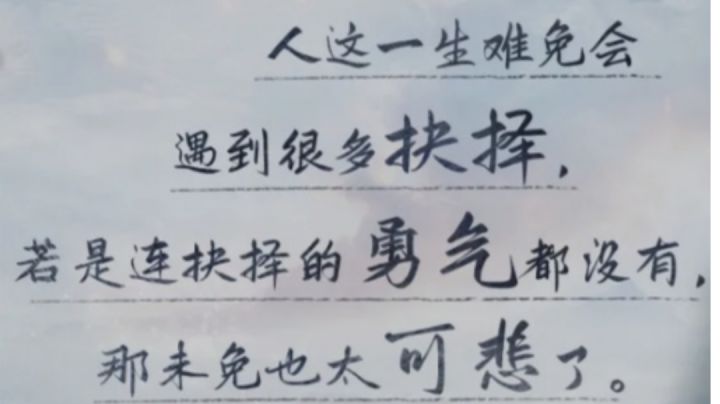 人这一生难免会
遇到很多抉择,
若是连抉择的勇气都没有,
那未免也太可悲了。